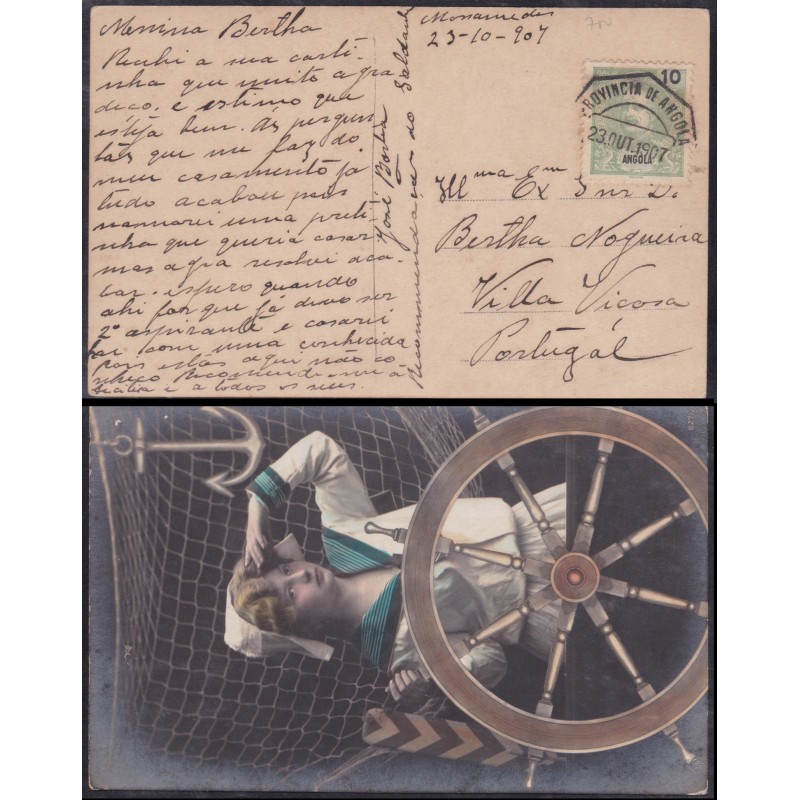 Menina Bertha
Recebi a sua carti-
nha que muito agra-
deco. e estimo que
esteja bem. As pergun
tas que me faz do
meu casamento já
tudo acabou pois
namorei uma preti-
nha que queria casar
mas agora resolvi aca-
bar. espero quando
ahi for que já devo ser
2º aspirante e casarei
com uma conhecida
pois estas aqui não co
nheço Recommende-me á
e a todos os seus.
José
Recommendações do Saldanha
Mossamedes
23-10-907
700
10
PROVINCIA DE ANGOLA
23.OUT.1907
ANGOLA
Illma Exm Snr D.
Bertha Nogueira
Villa Viçosa
Portugál